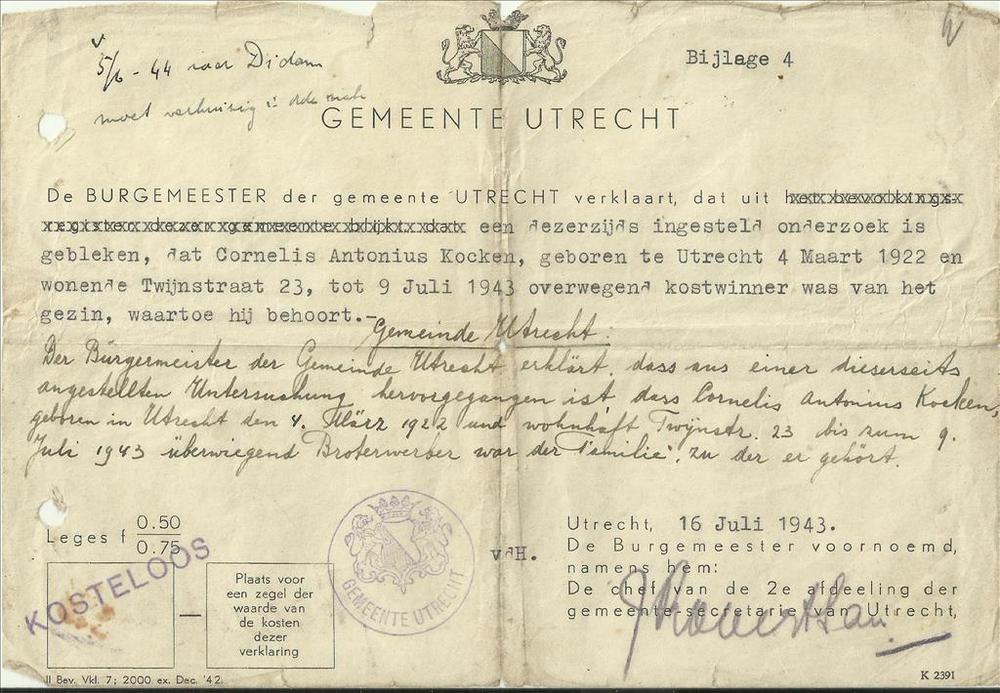 5/6 - 44 naar Didam
Bijlage 4
moet verhuizing
GEMEENTE UTRECHT
De BURGEMEESTER der gemeente UTRECHT verklaart, dat uit het bevolkings-
register dezer gemeente blijkt dat een dezerzijds ingesteld onderzoek is
gebleken, dat Cornelis Antonius Kocken, geboren te Utrecht 4 Maart 1922 en
wonende Twijnstraat 23, tot 9 Juli 1943 overwegend kostwinner was van het
gezin, waartoe hij behoort.-
Gemeinde Utrecht:
Der Bürgermeister der Gemeinde Utrecht erklärt, dass aus einer dieserseits
angestellten Untersuchung hervorgegangen ist dass Cornelis Antonius Kocken,
geboren in Utrecht den 4. März 1922 und wohnhaft Twijnstr. 23 bis zum 9.
Juli 1943 überwiegend Broterwerber war der Familie, zu der er gehört.
Leges f 0.50
0.75
KOSTELOOS
Plaats voor
een zegel der
waarde van
de kosten
dezer
verklaring
GEMEENTE UTRECHT
vdH.
Utrecht, 16 Juli 1943.
De Burgemeester voornoemd,
namens hem:
De chef van de 2e afdeeling der
gemeente-secretarie van Utrecht,
II Bev. Vkl. 7; 2000 ex. Dec. '42.
K 2391